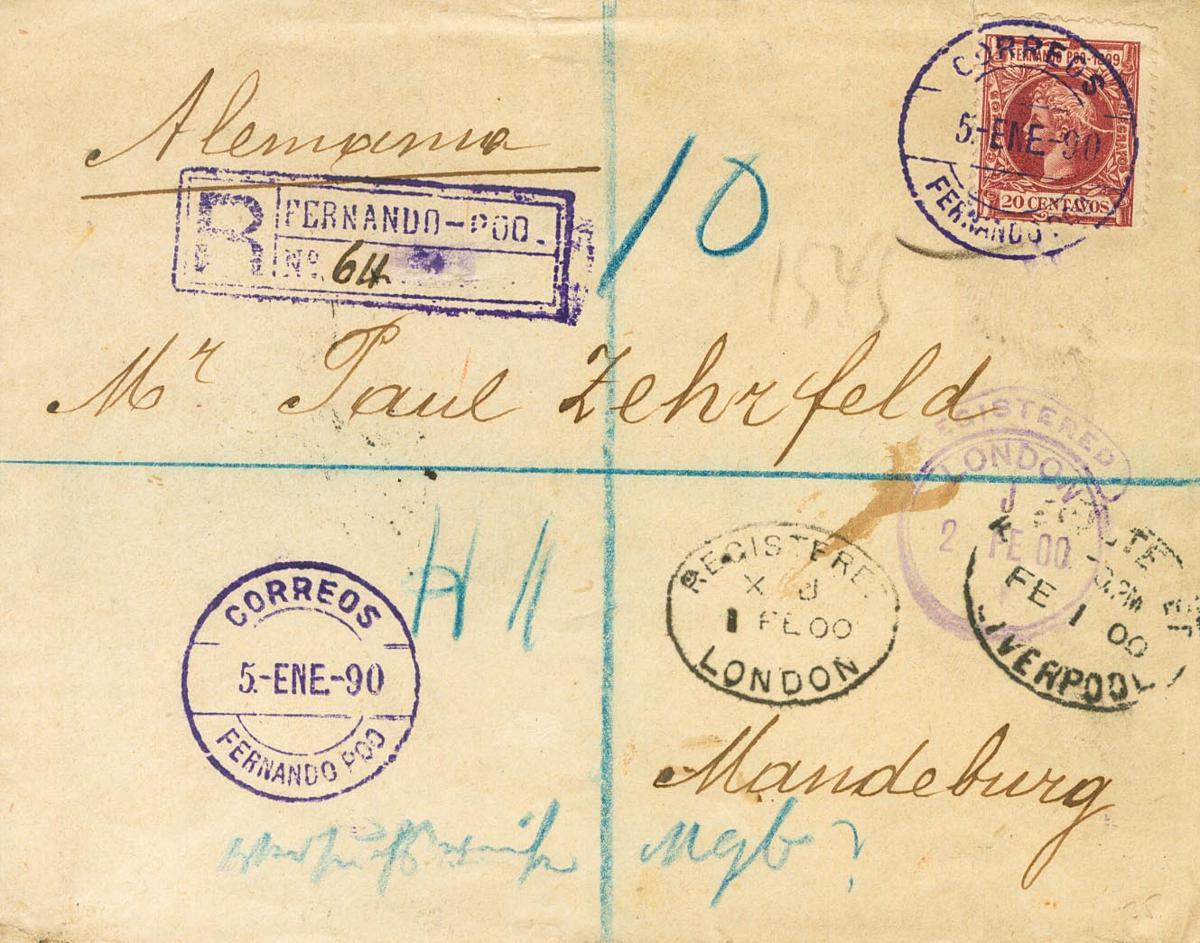 CORREOS
5-ENE-90
FERNANDO
FERNANDO POO-1899
20 CENTAVOS
Alemania
R FERNANDO-POO.
No. 64
10
1545
Mr Paul Zehrfeld
REGISTERED
LONDON
J
2 FE 00
H 11
REGISTERED
X J
1 FE 00
LONDON
FE 1 00
LIVERPOOL
CORREOS
5.-ENE-90
FERNANDO POO
Mandeburg
versuchsweise Mgb?